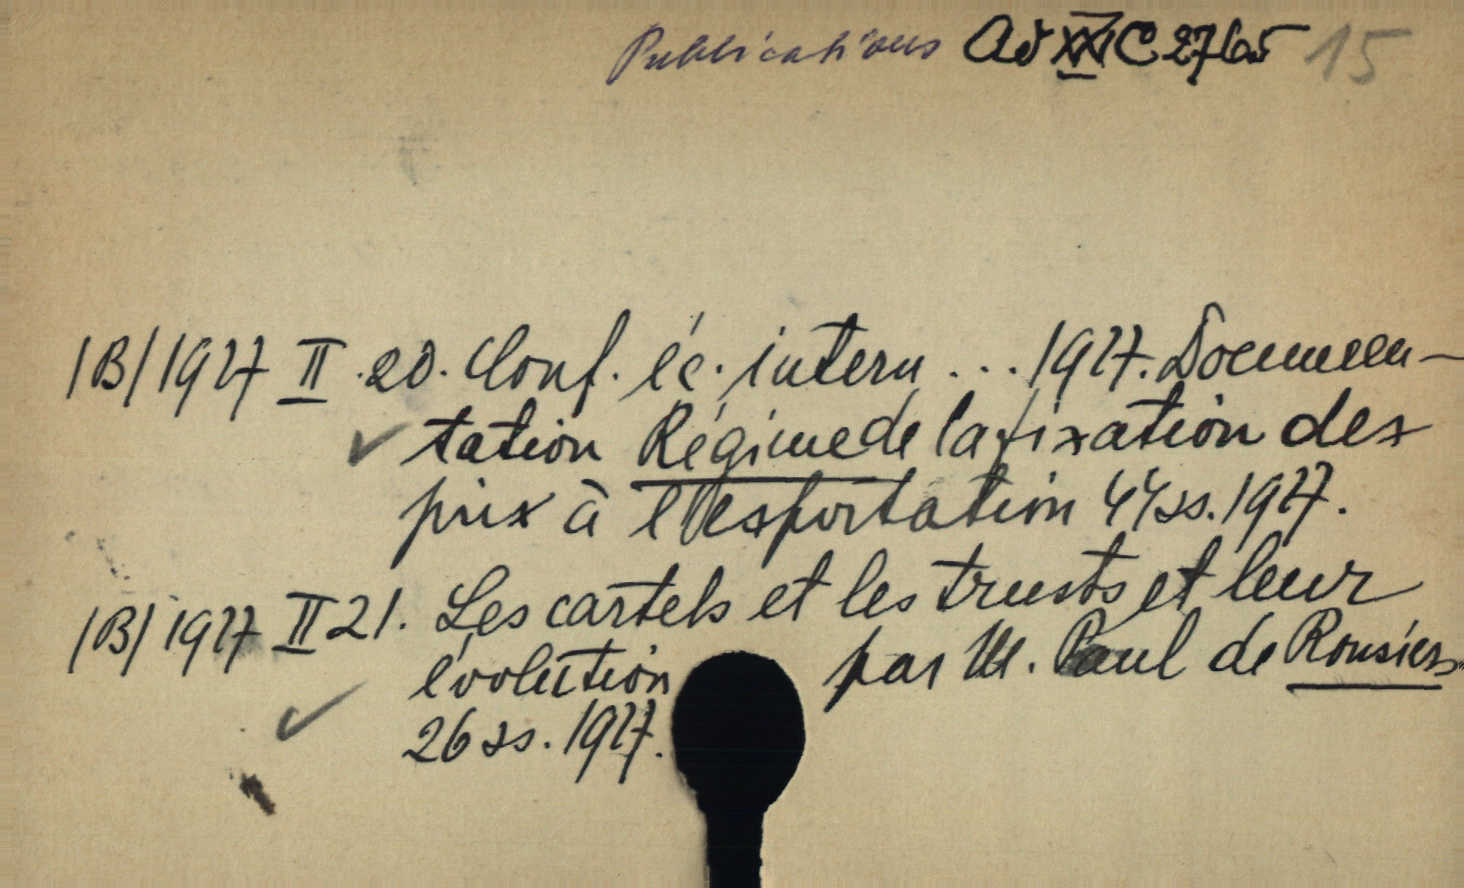 Publications Ad XXI C 2765 15
/B/ 1927 II .20. Conf. éc. intern ... 1927. Documen-
tation Régime de la fixation des
prix à l'exportation 44 ss. 1927.
/B/ 1927 II 21. Les cartels et les trusts et leur
évolution par M. Paul de Rousiers
26 ss. 1927.